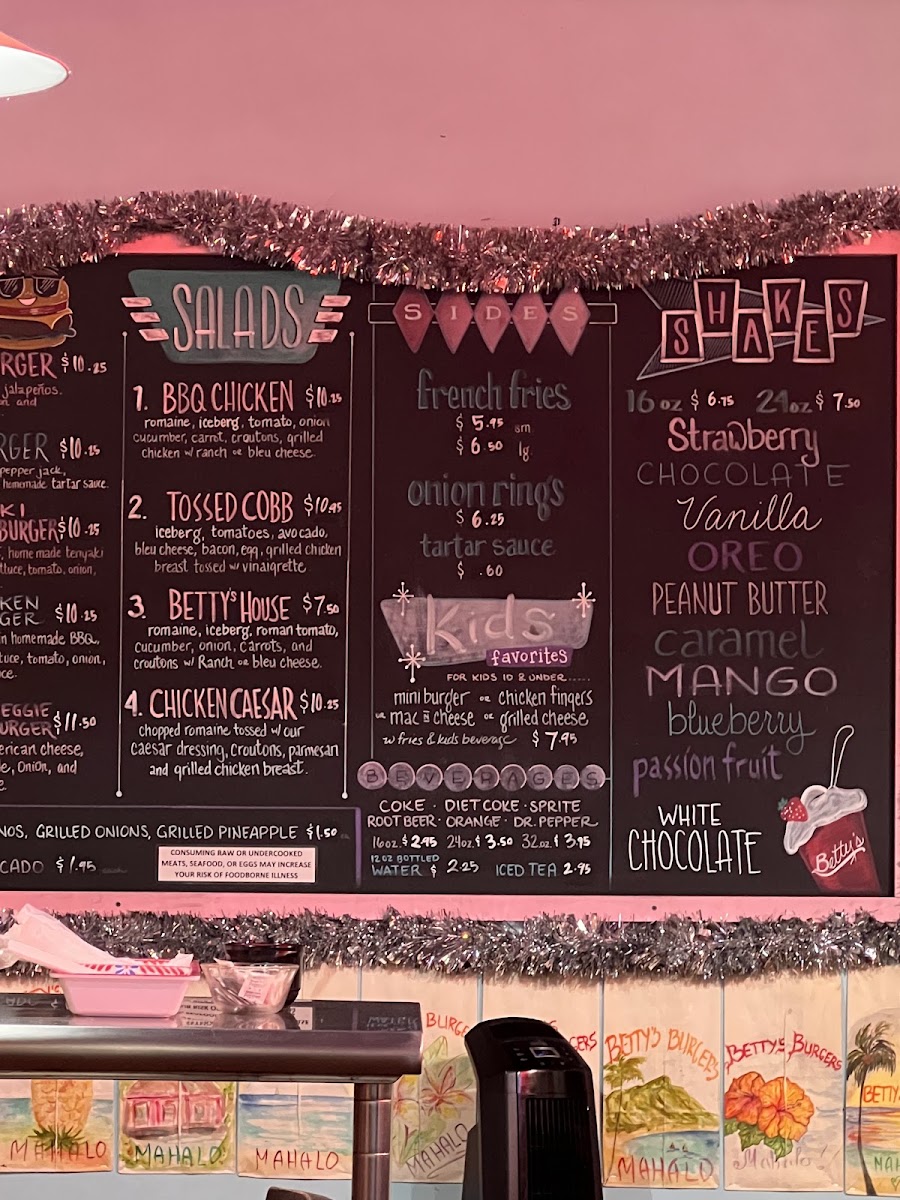 RGER $10.25
jalapeños.
and
RGER $10.25
pepper jack,
homemade tartar sauce.
KI
BURGER $10.25
, home made teriyaki
ttuce, tomato, onion,
KEN
GER $10.25
in homemade BBQ,
tuce, tomato, onion,
ce.
EGGIE
URGER $11.50
erican cheese,
le, onion, and
e
NOS, GRILLED ONIONS, GRILLED PINEAPPLE $1.50 ea
CADO $1.95
CONSUMING RAW OR UNDERCOOKED
MEATS, SEAFOOD, OR EGGS MAY INCREASE
YOUR RISK OF FOODBORNE ILLNESS
SALADS
1. BBQ CHICKEN $10.25
romaine, iceberg, tomato, onion
cucumber, carrot, croutons, grilled
chicken w/ ranch or bleu cheese.
2. TOSSED COBB $10.95
iceberg, tomatoes, avocado,
bleu cheese, bacon, egg, grilled chicken
breast tossed w/ vinaigrette
3. BETTY'S HOUSE $7.50
romaine, iceberg, roman tomato,
cucumber, onion, carrots, and
croutons w/ Ranch or bleu cheese.
4. CHICKEN CAESAR $10.25
chopped romaine tossed w/ our
caesar dressing, croutons, parmesan
and grilled chicken breast.
SIDES
french fries
$5.95 sm
$6.50 lg
onion rings
$6.25
tartar sauce
$.60
Kids
favorites
FOR KIDS 10 & UNDER......
mini burger or chicken fingers
or mac n cheese or grilled cheese
w/ fries & kids beverage $7.95
BEVERAGES
COKE · DIET COKE · SPRITE
ROOT BEER · ORANGE · DR. PEPPER
16oz. $2.95 24oz. $3.50 32oz. $3.95
12 OZ BOTTLED
WATER $2.25 ICED TEA 2.95
SHAKES
16 oz $6.75 24oz $7.50
Strawberry
CHOCOLATE
Vanilla
OREO
PEANUT BUTTER
caramel
MANGO
blueberry
passion fruit
WHITE
CHOCOLATE
Betty's
MAHALO
MAHALO
MAHALO
BURGE
MAHALO
GERS
BETTY'S BURGERS
MAHALO
BETTY'S BURGERS
Mahalo!
BETTY
MAH